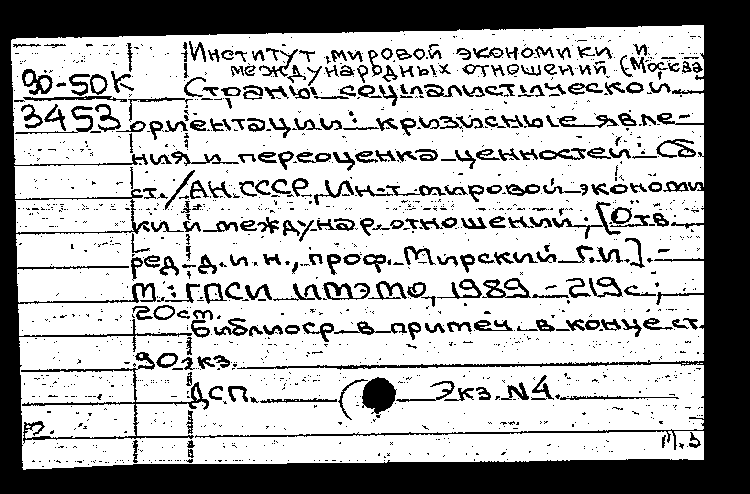 Институт мировой экономики и
международных отношений (Москва
90-50К Страны социалистической
3453 ориентации: кризисные явле-
ния и переоценка ценностей: Сб.
ст./АН СССР, Ин-т мировой экономи
ки и междунар. отношений; [Отв.
ред. д.и.н., проф. Мирский Г.И.].-
М.: ГПСИ ИМЭМО, 1989.-219с.;
20см.
Библиогр. в примеч. в конце ст.
90экз.
ДСП. Экз. N4.